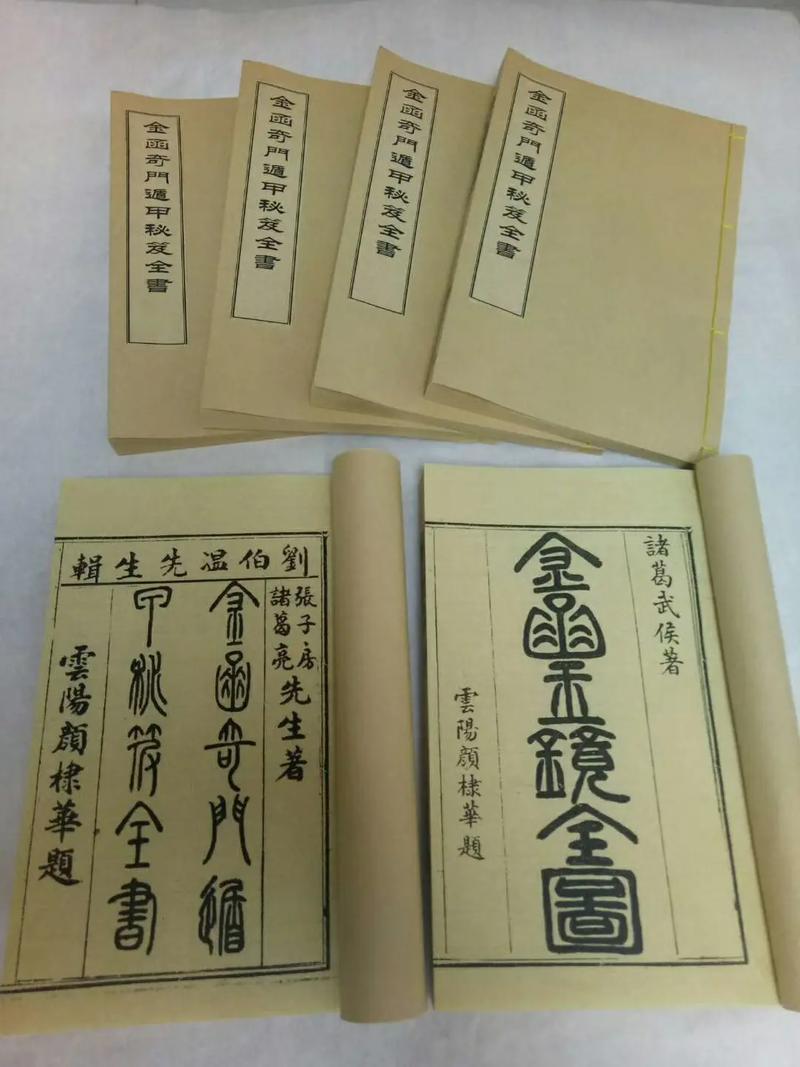 金函奇門遁甲秘笈全書
金函奇門遁甲秘笈全書
金函奇門遁甲秘笈全書
金函奇門遁甲秘笈全書
劉伯温先生輯
張子房
諸葛亮
先生著
金函奇門遁
甲秘笈全書
雲陽顏棣華題
諸葛武侯著
金函玉鏡全圖
雲陽顏棣華題